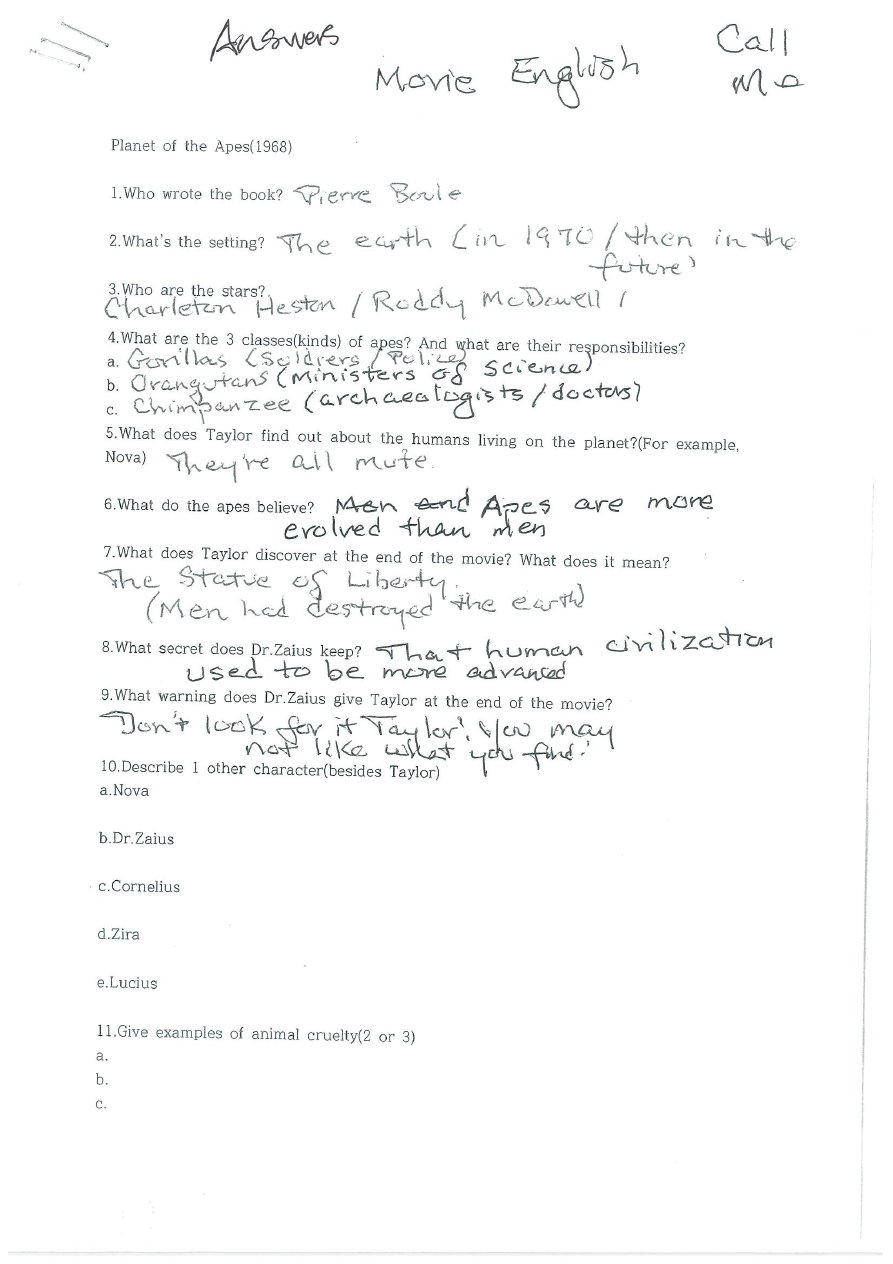 Answers
Call
Movie English
Me
Planet of the Apes(1968)
1.Who wrote the book? Pierre Boule
2.What's the setting? The earth (in 1970 / then in the
future)
3.Who are the stars?
Charleton Heston / Roddy McDowell /
4.What are the 3 classes(kinds) of apes? And what are their responsibilities?
a. Gorillas (Soldiers / Police)
b. Orangutans (Ministers of Science)
c. Chimpanzee (archaeologists / doctors)
5.What does Taylor find out about the humans living on the planet?(For example,
Nova) They're all mute.
6.What do the apes believe? Men and Apes are more
evolved than men
7.What does Taylor discover at the end of the movie? What does it mean?
The Statue of Liberty.
(Men had destroyed the earth)
8.What secret does Dr.Zaius keep? That human civilization
used to be more advanced
9.What warning does Dr.Zaius give Taylor at the end of the movie?
"Don't look for it Taylor! You may
not like what you find."
10.Describe 1 other character(besides Taylor)
a.Nova
b.Dr.Zaius
c.Cornelius
d.Zira
e.Lucius
11.Give examples of animal cruelty(2 or 3)
a.
b.
c.